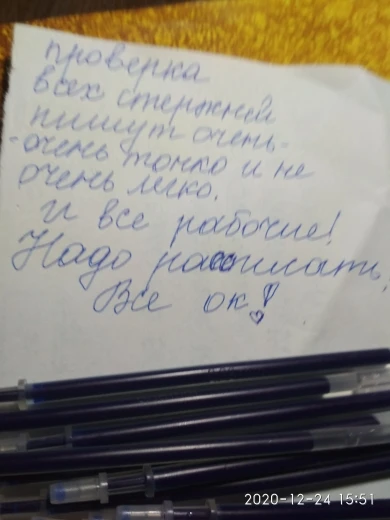 проверка
всех стержней
пишут очень-
-очень тонко и не
очень легко.
И все рабочие!
Надо расписать,
Все ок!
2020-12-24 15:51